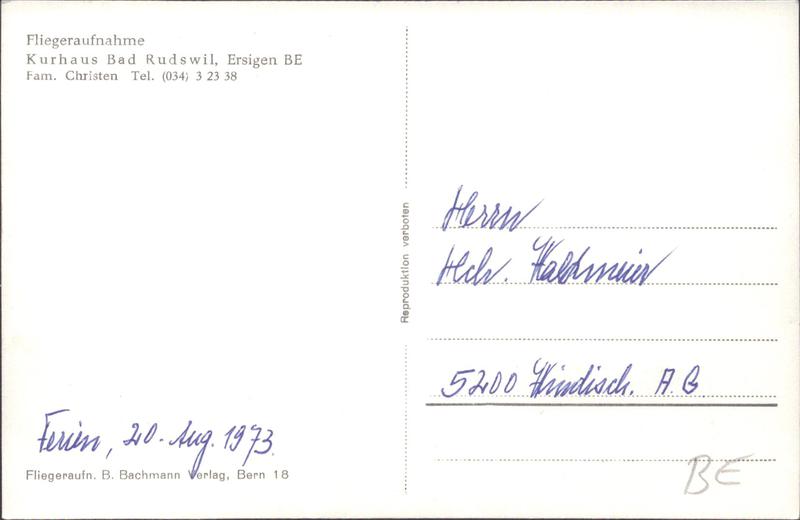 Fliegeraufnahme
Kurhaus Bad Rudswil, Ersigen BE
Fam. Christen Tel. (034) 3 23 38
Ferien, 20. Aug. 1973.
Fliegeraufn. B. Bachmann Verlag, Bern 18
Reproduktion verboten
Herrn
Hch.
5200 Windisch. A.G.
BE